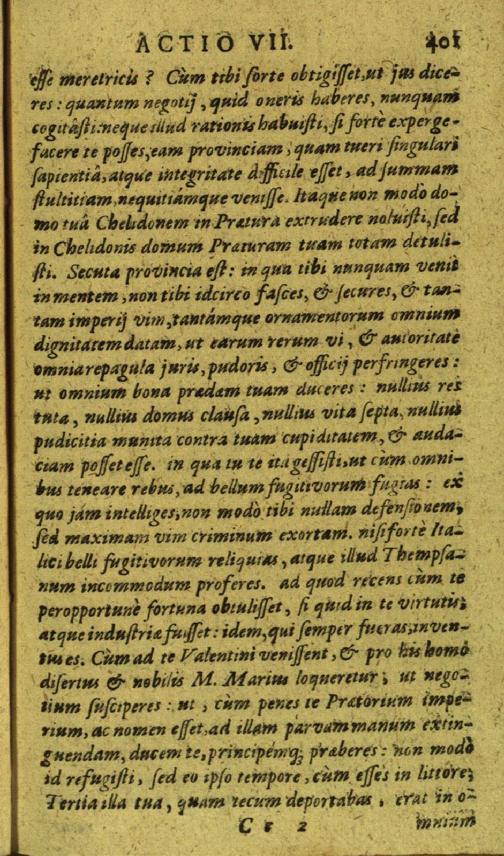 ACTIO VII. 401
esse meretricis? Cùm tibi sorte obtigisset, ut jus dice-
res: quantum negotij, quid oneris haberes, nunquam
cogitâsti: neque illud rationis habuisti, si fortè experge-
facere te posses, eam provinciam, quam tueri singulari
sapientiâ, atque integritate difficile esset, ad summam
stultitiam, nequitiámque venisse. Itaque non modò do-
mo tuâ Chelidonem in Prætura extrudere noluisti, sed
in Chelidonis domum Præturam tuam totam detuli-
sti. Secuta provincia est: in qua tibi nunquam venit
in mentem, non tibi idcirco fasces, & secures, & tan-
tam imperij vim, tantámque ornamentorum omnium
dignitatem datam, ut earum rerum vi, & autoritate
omnia repagula juris, pudoris, & officij perfringeres:
ut omnium bona prædam tuam duceres: nullius res
tuta, nullius domus clausa, nullius vita septa, nullius
pudicitia munita contra tuam cupiditatem, & auda-
ciam posset esse. in qua tu te ita gessisti, ut cùm omni-
bus teneare rebus, ad bellum fugitivorum fugias: ex
quo jam intelliges, non modò tibi nullam defensionem,
sed maximam vim criminum exortam. nisi fortè Ita-
lici belli fugitivorum reliquias, atque illud Thempsa-
num incommodum proferes. ad quod recens cùm te
peropportunè fortuna obtulisset, si quid in te virtutis,
atque industriæ fuisset: idem, qui semper fueras, inven-
tus es. Cùm ad te Valentini venissent, & pro his homo
disertus & nobilis M. Marius loqueretur, ut nego-
tium susciperes: ut, cùm penes te Prætorium impe-
rium, ac nomen esset, ad illam parvam manum extin-
guendam, ducem te, principémq; præberes: non modò
id refugisti, sed eo ipso tempore, cùm esses in littore,
Tertia illa tua, quam tecum deportabas, erat in o-
Cc 2 mnium